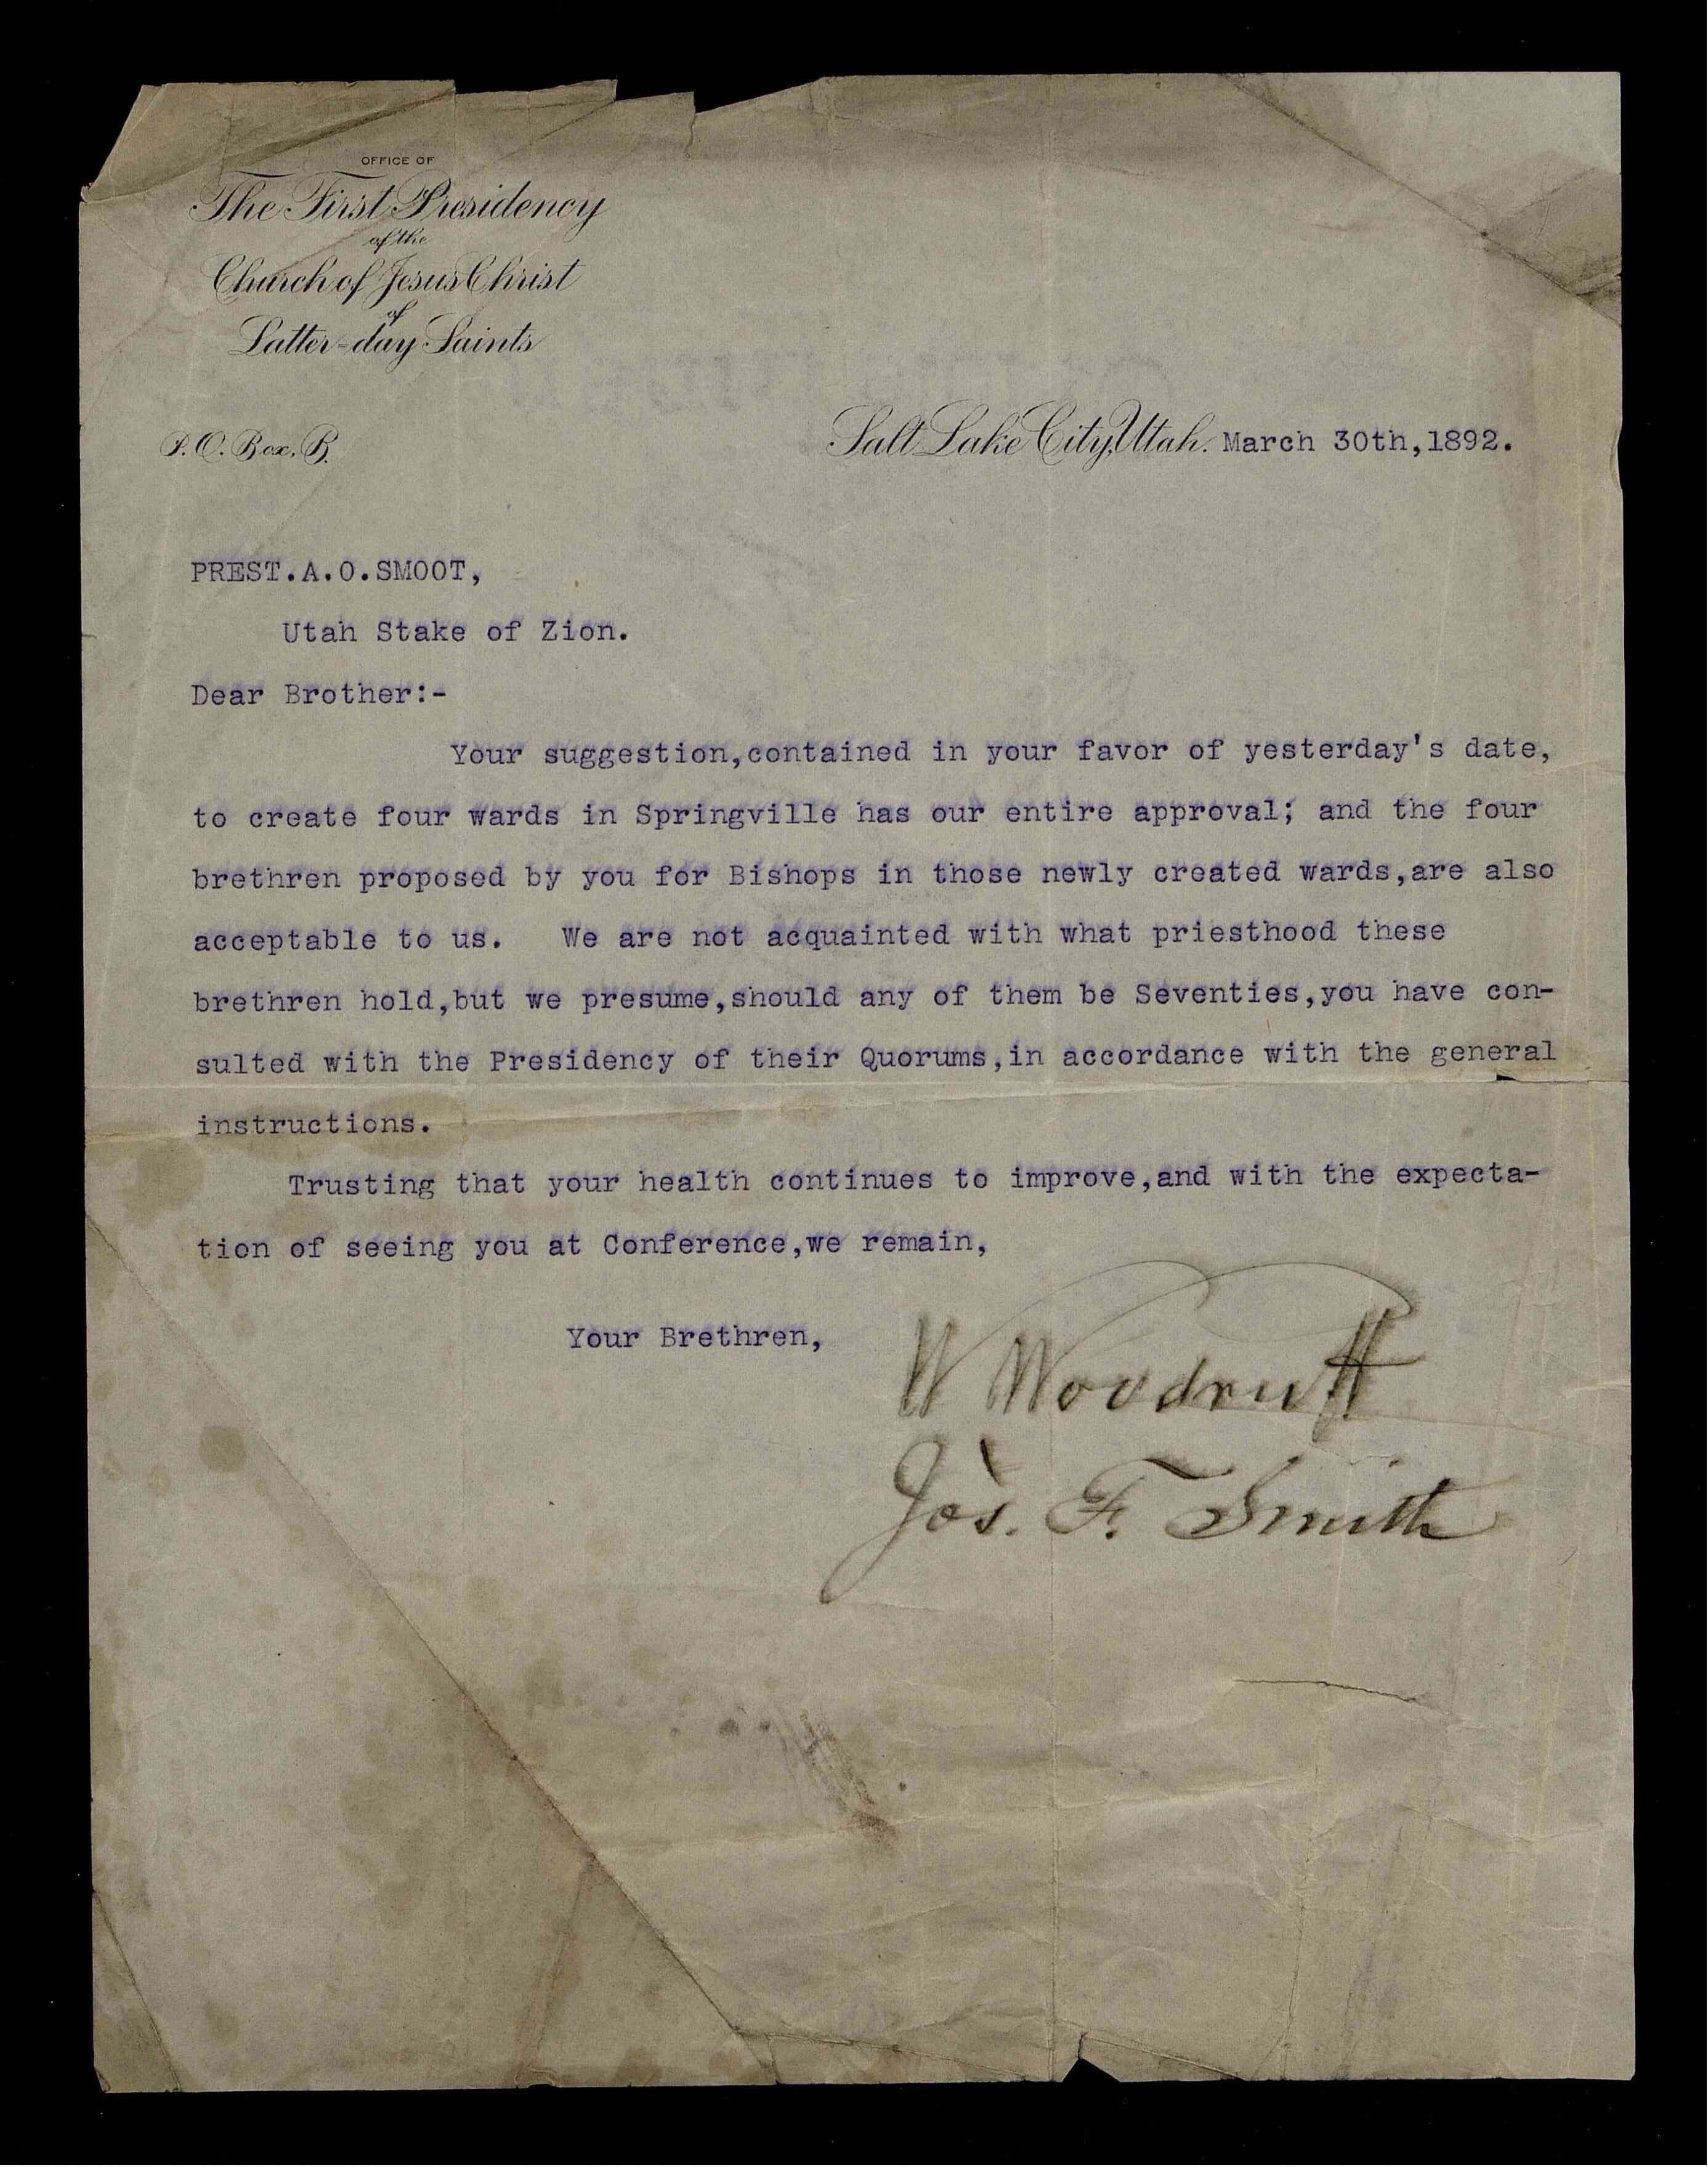 OFFICE OF
The First Presidency
of the
Church of Jesus Christ
of
Latter-day Saints
P. O. Box, B.
Salt Lake City, Utah. March 30th,1892.
PREST.A.O.SMOOT,
Utah Stake of Zion.
Dear Brother:-
Your suggestion,contained in your favor of yesterday's date,
to create four wards in Springville has our entire approval; and the four
brethren proposed by you for Bishops in those newly created wards,are also
acceptable to us. We are not acquainted with what priesthood these
brethren hold,but we presume,should any of them be Seventies,you have con-
sulted with the Presidency of their Quorums,in accordance with the general
instructions.
Trusting that your health continues to improve,and with the expecta-
tion of seeing you at Conference,we remain,
Your Brethren,
W Woodruff
Jos. F. Smith